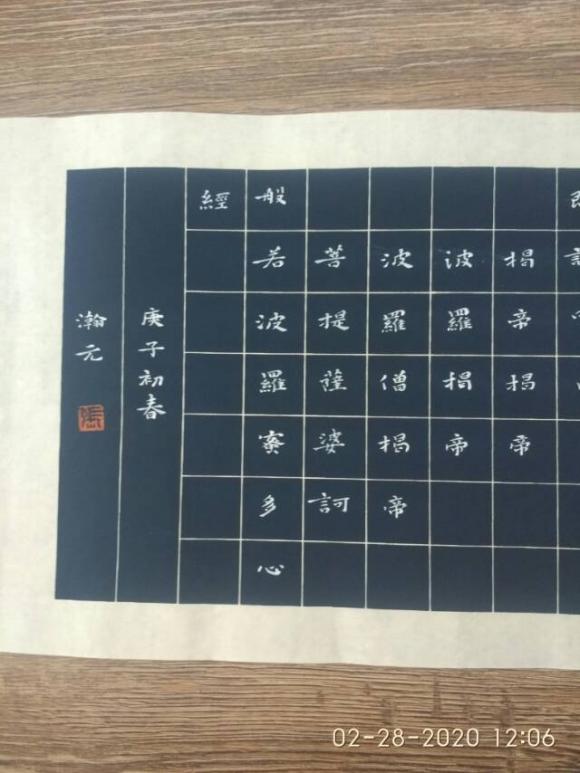 揭帝揭帝
波羅揭帝
波羅僧揭帝
菩提薩婆訶
般若波羅蜜多心
經
庚子初春
瀚元
02-28-2020 12:06